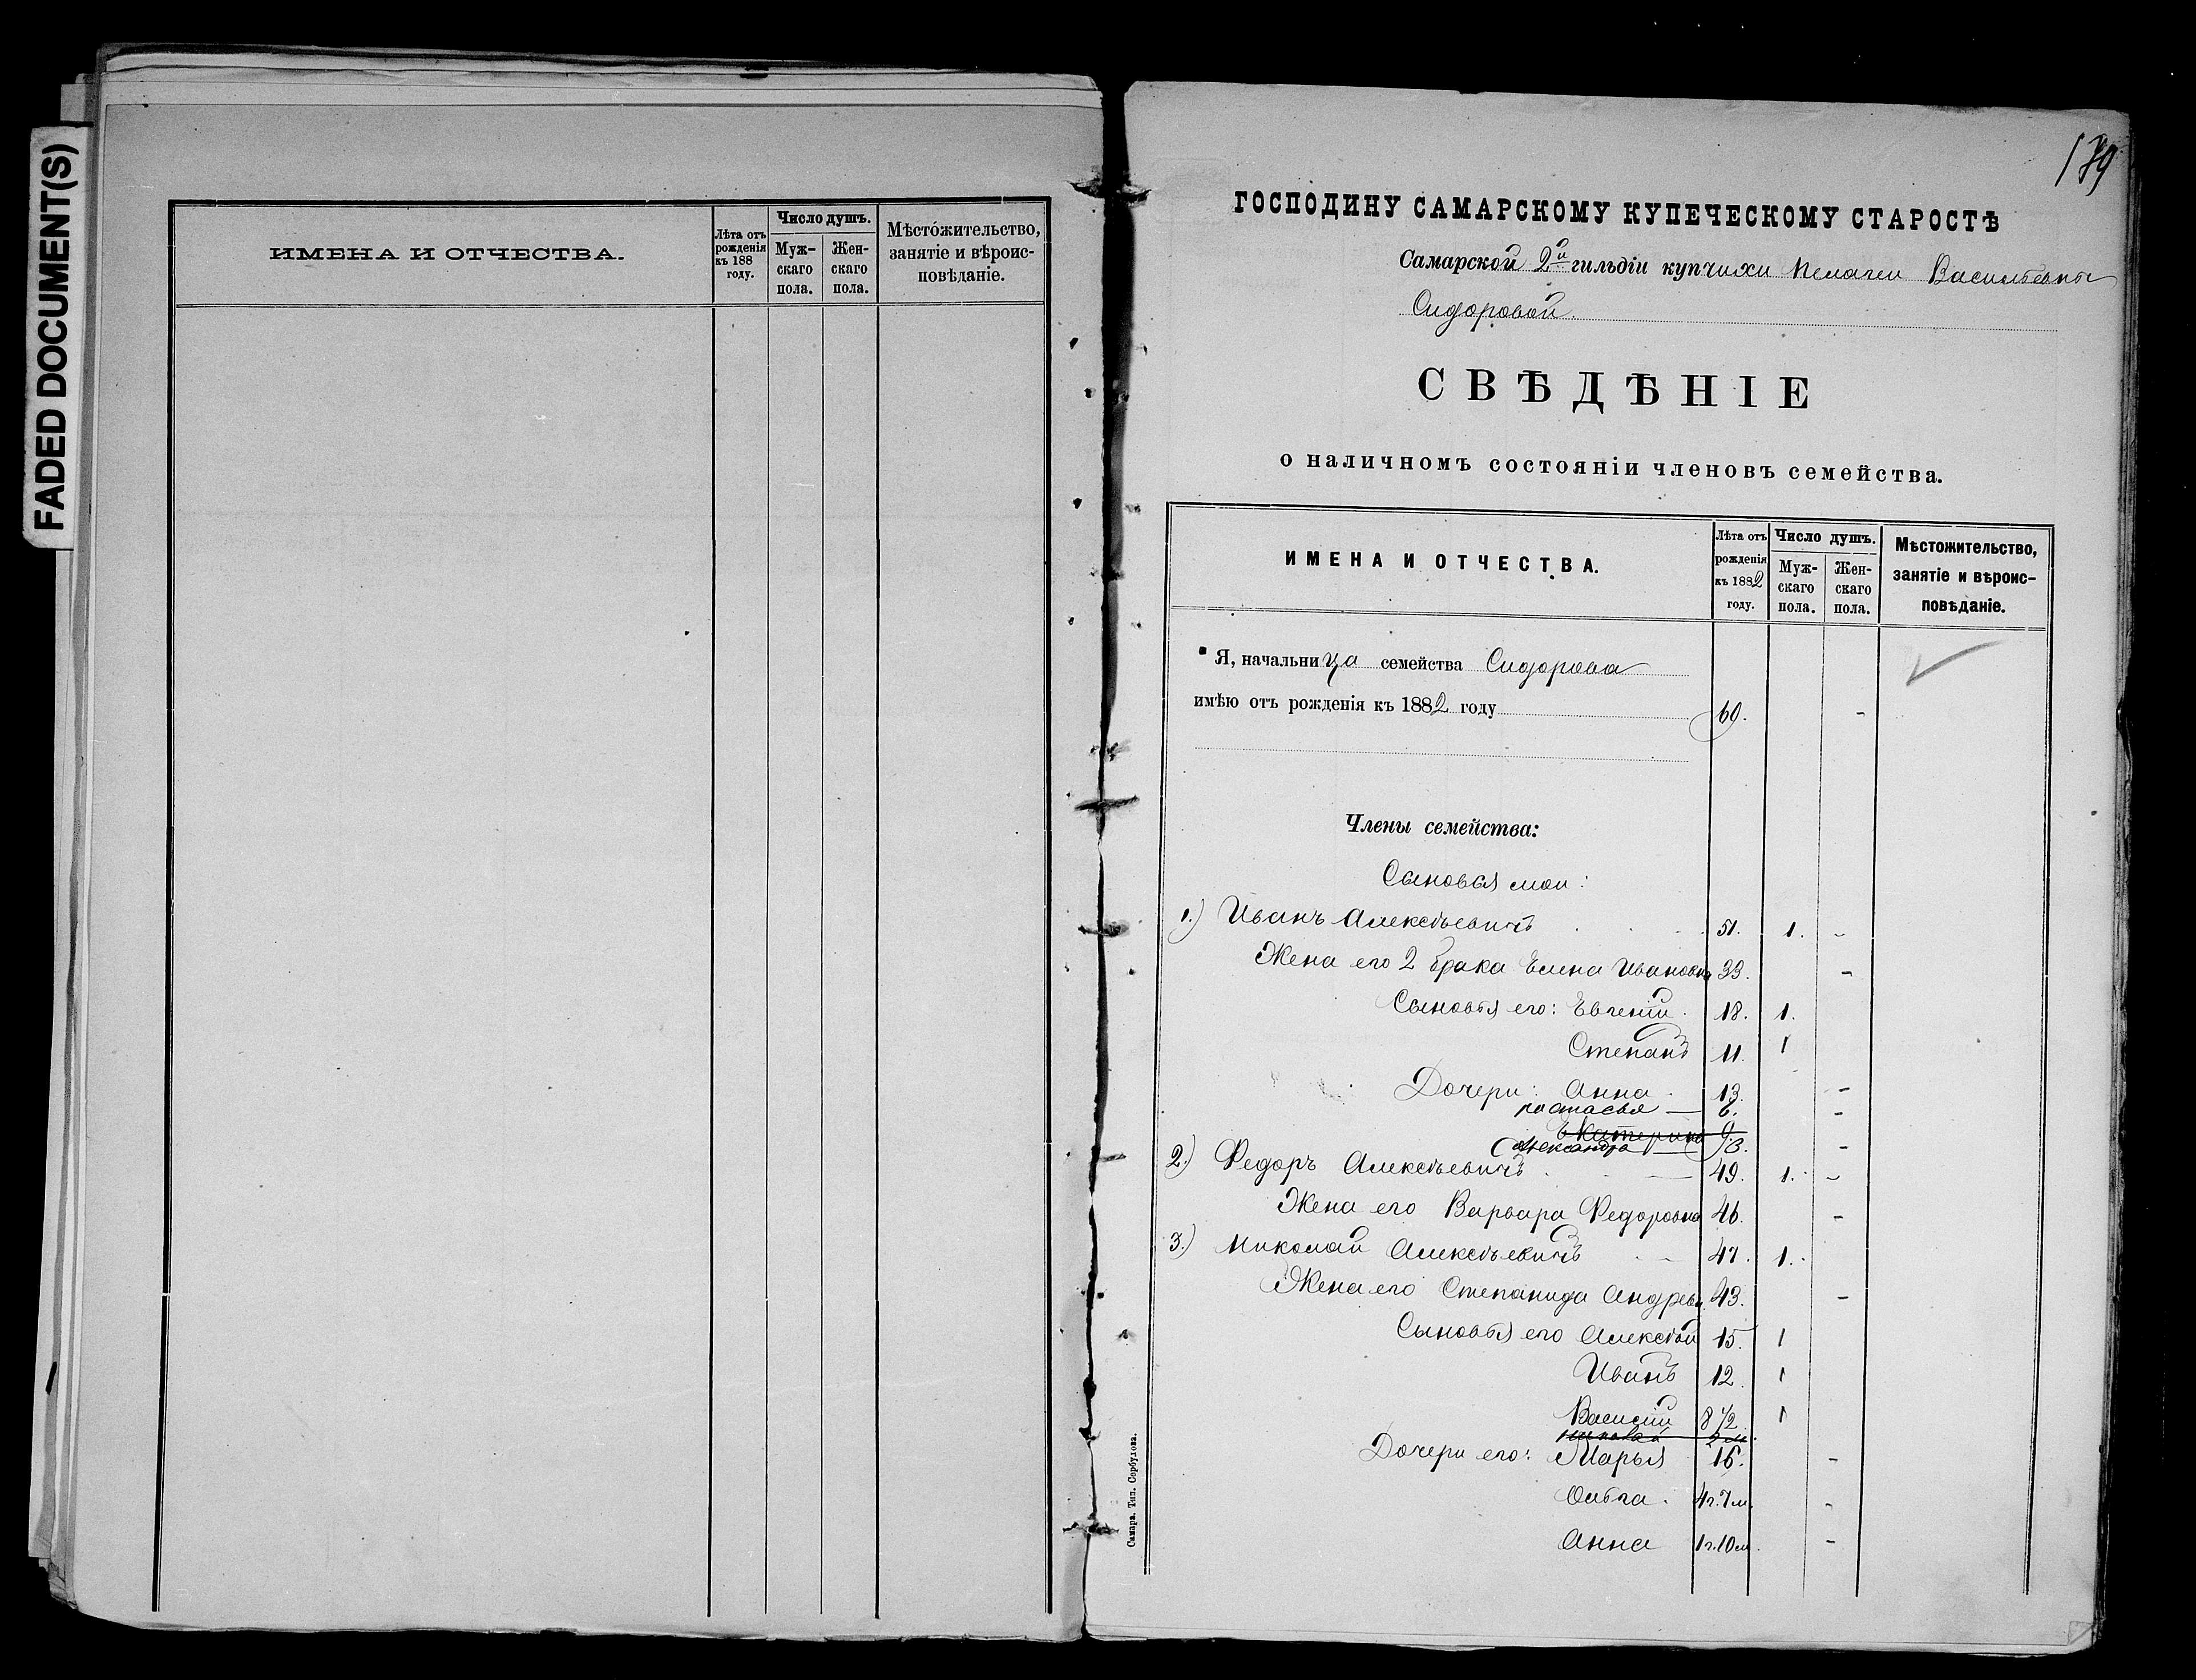 FADED DOCUMENT(S)
ИМЕНА И ОТЧЕСТВА.
Лѣта отъ
рожденія
къ 188
году.
Число душъ.
Муж-
скаго
пола.
Жен-
скаго
пола.
Мѣстожительство,
занятіе и вѣроис-
повѣданіе.
179
ГОСПОДИНУ САМАРСКОМУ КУПЕЧЕСКОМУ СТАРОСТѢ
Самарской 2й гильдіи купчихи Пелагеи Васильевны
Сидоровой.
СВѢДѢНІЕ
о наличномъ состояніи членовъ семейства.
ИМЕНА И ОТЧЕСТВА.
Лѣта отъ
рожденія
къ 1882
году.
Число душъ.
Муж-
скаго
пола.
Жен-
скаго
пола.
Мѣстожительство,
занятіе и вѣроис-
повѣданіе.
Я, начальница семейства Сидорова
имѣю отъ рожденія къ 1882 году 60. -
Члены семейства:
Сыновья мои:
1.) Иванъ Алексѣевичъ 51. 1. -
Жена его 2 брака Елена Ивановна 33. -
Сыновья его: Евгеній. 18. 1.
Степанъ 11. 1
Дочери: Анна 13. -
Настасья — 6. -
Екатерина
Александра -
2.) Федоръ Алексѣевичъ 49. 1. -
Жена его Варвара Федоровна 46. -
3.) Николай Алексѣевичъ 47. 1.
Жена его Степанида Андревн. 43. -
Сыновья его Алексѣй 15. 1
Иванъ 12. 1
Василій 8 1/2 1
Николай 2 м.
Дочери его: Марья 16. -
Ольга. 4г. 7м. -
Анна 1г. 10м. -
Самара. Тип. Сербулова.